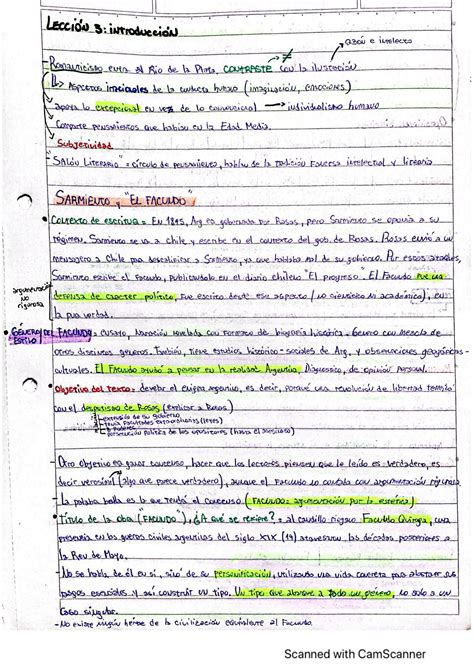 LECCIÓN 3: introducción
razón e intelecto
≠
- Romanticismo entra al Río de la Plata, CONTRASTE con la ilustración
Aspectos irracionales de la conducta humana (imaginación, emociones)
apoya lo excepcional en vez de lo convencional → individualismo humano
Comparte pensamientos que habían en la Edad Media.
Subjetividad
"SALÓN LITERARIO" = círculo de pensamiento, hablan de la tradición francesa intelectual y literaria
SARMIENTO y "EL FACUNDO"
• Contexto de escritura = En 1845, Arg es gobernada por Rosas, pero Sarmiento se oponía a su
régimen. Sarmiento se va a Chile y escribe en el contexto del gob. de Rosas. Rosas envió a un
mensajero a Chile para desacreditar a Sarmiento, ya que hablaba mal de su gobierno. Por estos ataques,
Sarmiento escribe "Facundo", publicándolo en el diario chileno "El progreso". El Facundo fue una
defensa de carácter político, fue escrito desde ese aspecto (no científico ni académico), en
la pura verdad.
argumentación no rigurosa
• GÉNERO DEL FACUNDO: ensayo, narración novelada con formato de biografía histórica. Género con mezcla de
ESTILO
otros discursos géneros. También, tiene estudios histórico-sociales de Arg, y observaciones geográficas-
culturales. El Facundo ayudó a pensar en la realidad Argentina, Diagnóstico, de opinión personal.
• Objetivo del texto: develar el enigma argentino, es decir, porqué una revolución de libertad terminó
con el despotismo de Rosas (explicar a Rosas)
de su gobierno
tenía facultades extraordinarias (leyes)
3 Poderes
persecución política de los opositores (hasta el asesinato)
- Otro objetivo es ganar consenso, hacer que los lectores piensen que lo leído es verdadero, es
decir verosímil (algo que parece verdadero), aunque el Facundo no contaba con argumentación rigurosa.
- La palabra bella es lo que tendrá el consenso (FACUNDO: argumentación por la estética)
• TÍTULO de la obra ("FACUNDO"), ¿A qué se refiere? = al caudillo riojano Facundo Quiroga, una
presencia en las guerras civiles argentinas del siglo XIX (19) atravesaron las décadas posteriores a
la Rev de Mayo.
- No se habla de él en sí, sino de su personificación, utilizando una vida concreta para abstraer sus
rasgos esenciales y así construir un tipo. Un tipo que abarque a todo un género, no solo a un
caso singular.
- No existe ningún héroe de la civilización equivalente al Facundo.
Scanned with CamScanner